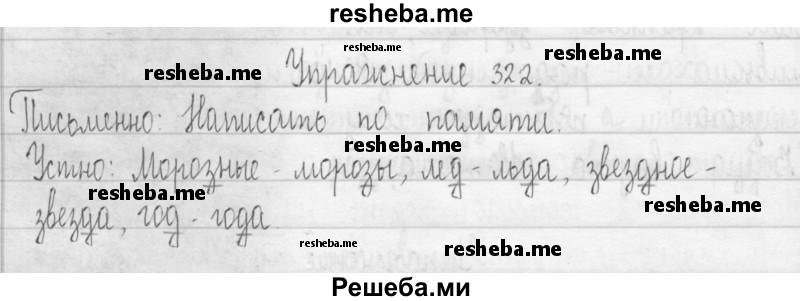 resheba.me
resheba.me
Упражнение 322.
resheba.me
resheba.me
Письменно: Написать по памяти.
Устно: Морозные - морозы, лед - льда, звездное -
resheba.me
resheba.me
звезда, год - года.
resheba.me
resheba.me
Решеба.ми